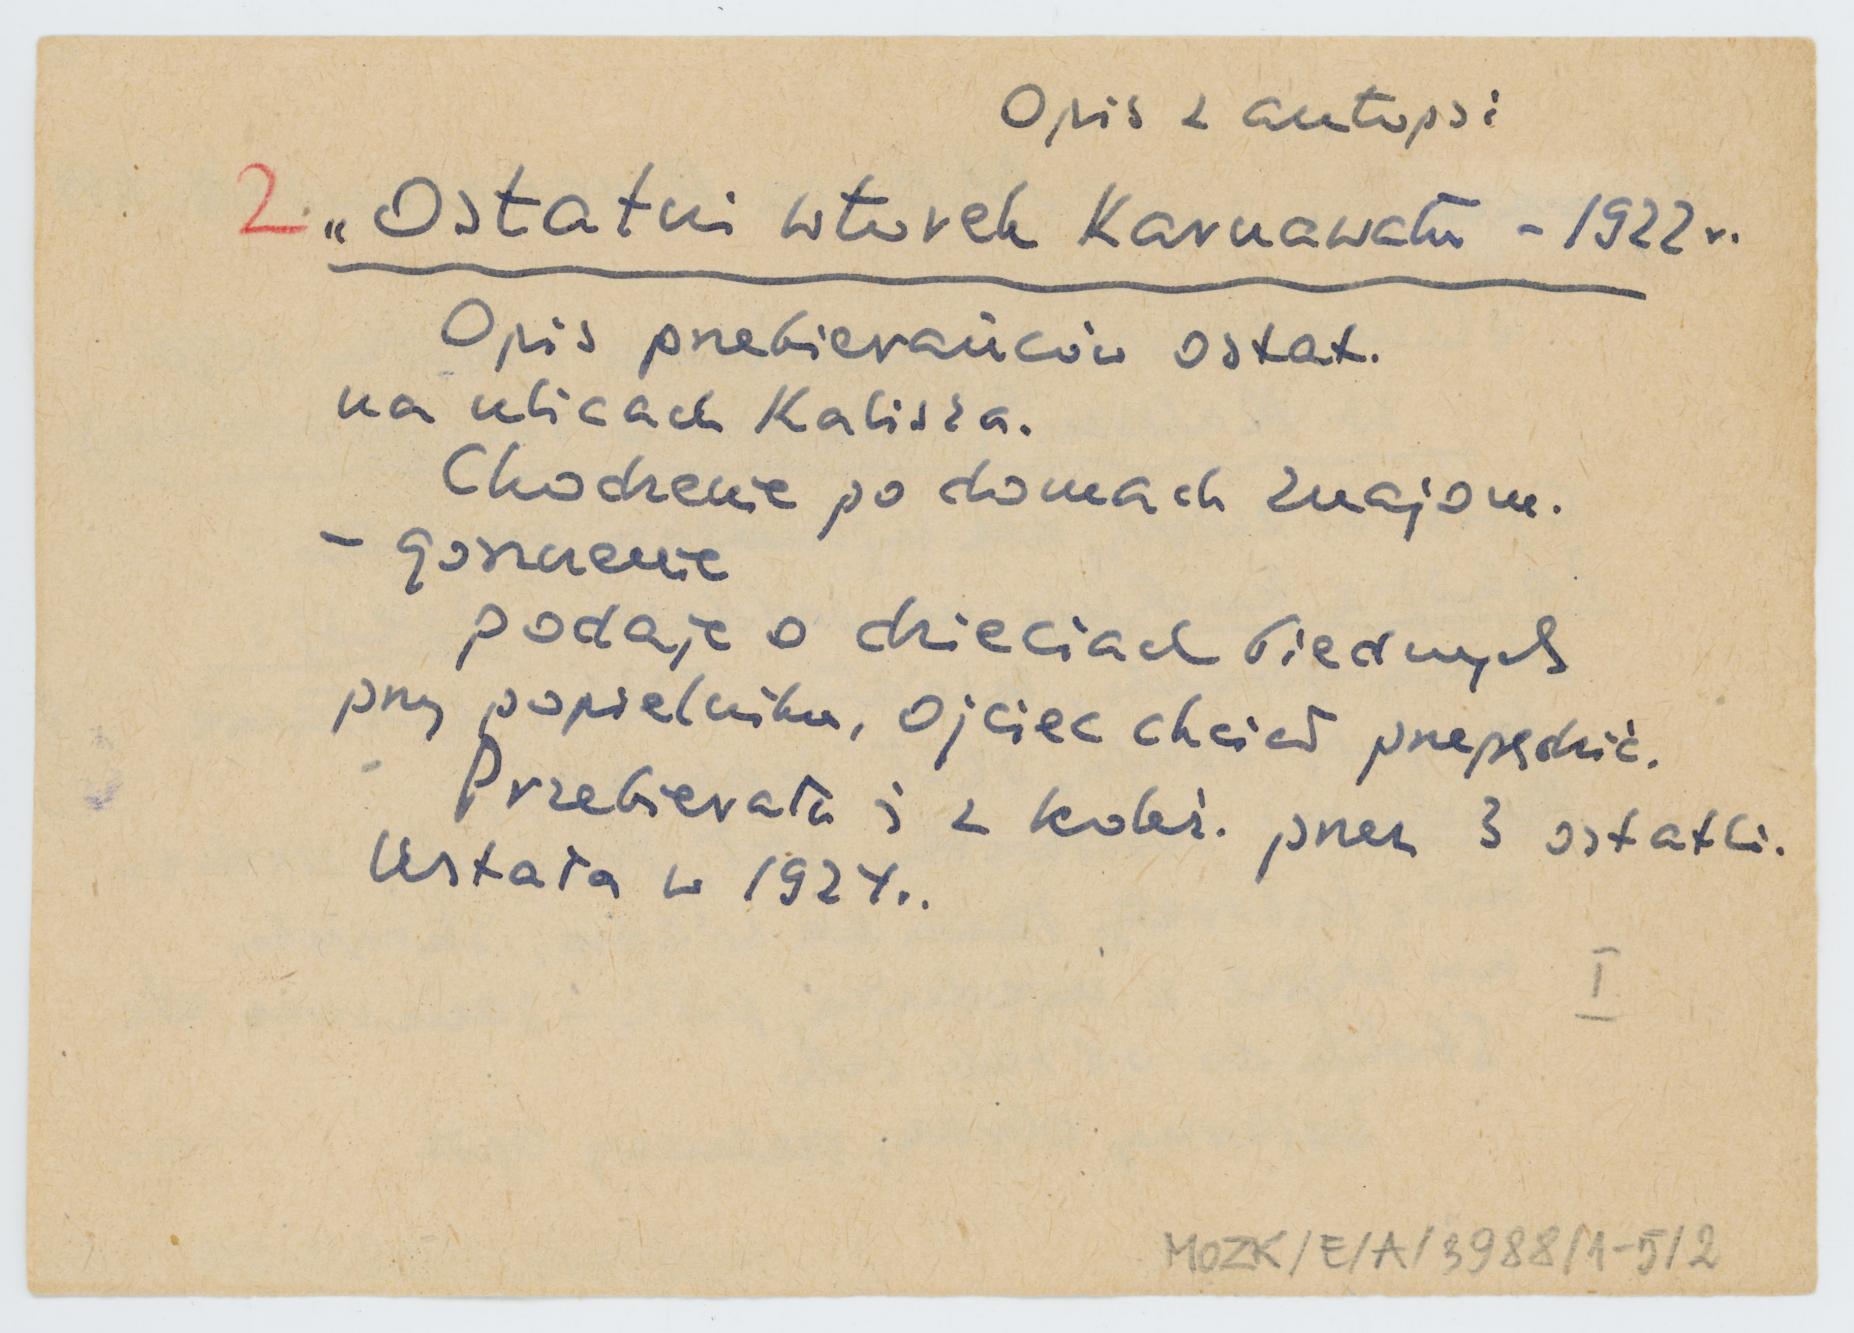 Opis z autopsi
2. „Ostatni wtorek Karnawału - 1922 r.
Opis przebierańców ostat.
na ulicach Kalisza.
Chodzenie po domach znajom.
- goszczenie
podaje o dzieciach biednych
przy popielniku, ojciec chciał przepędzić.
Przebierała i z kobi. przez 3 ostatki.
Ustała w 1924..
I
MOZK/E/A/3988/1-5/2